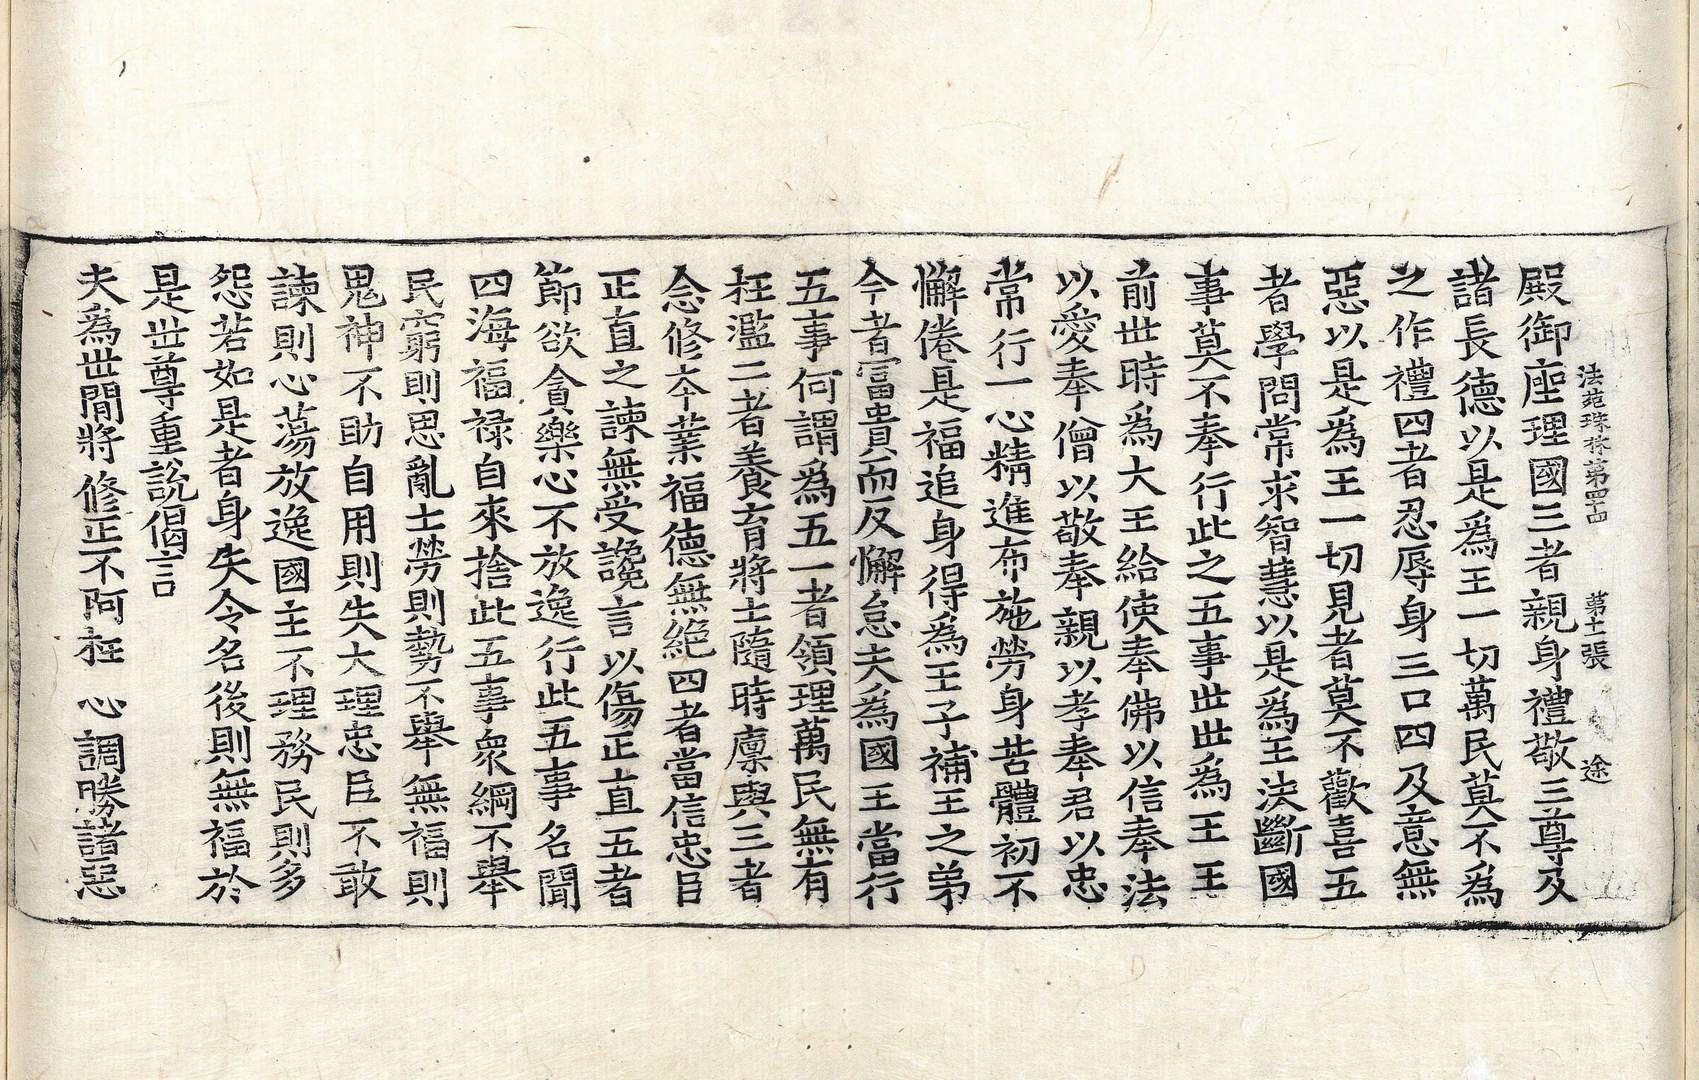 法苑珠林第四十四 第十一張 途
殿御座理國三者親身禮敬三尊及
諸長德以是爲王一切萬民莫不爲
之作禮四者忍辱身三口四及意無
惡以是爲王一切見者莫不歡喜五
者學問常求智慧以是爲王決斷國
事莫不奉行行此之五事世世爲王王
前世時爲大王給使奉佛以信奉法
以愛奉僧以敬奉親以孝奉君以忠
常行一心精進布施勞身苦體初不
懈倦是福追身得爲王子補王之弟
今者富貴而反懈怠夫爲國王當行
五事何謂爲五一者領理萬民無有
枉濫二者養育將士隨時廩與三者
念修本業福德無絕四者當信忠臣
正直之諫無受讒言以傷正直五者
節欲貪樂心不放逸行此五事名聞
四海福祿自來捨此五事衆綱不舉
民窮則思亂士勞則勢不舉無福則
鬼神不助自用則失大理忠臣不敢
諫則心蕩放逸國主不理務民則多
怨若如是者身失令名後則無福於
是世尊重說偈言
夫爲世間將 修正不阿枉 心調勝諸惡